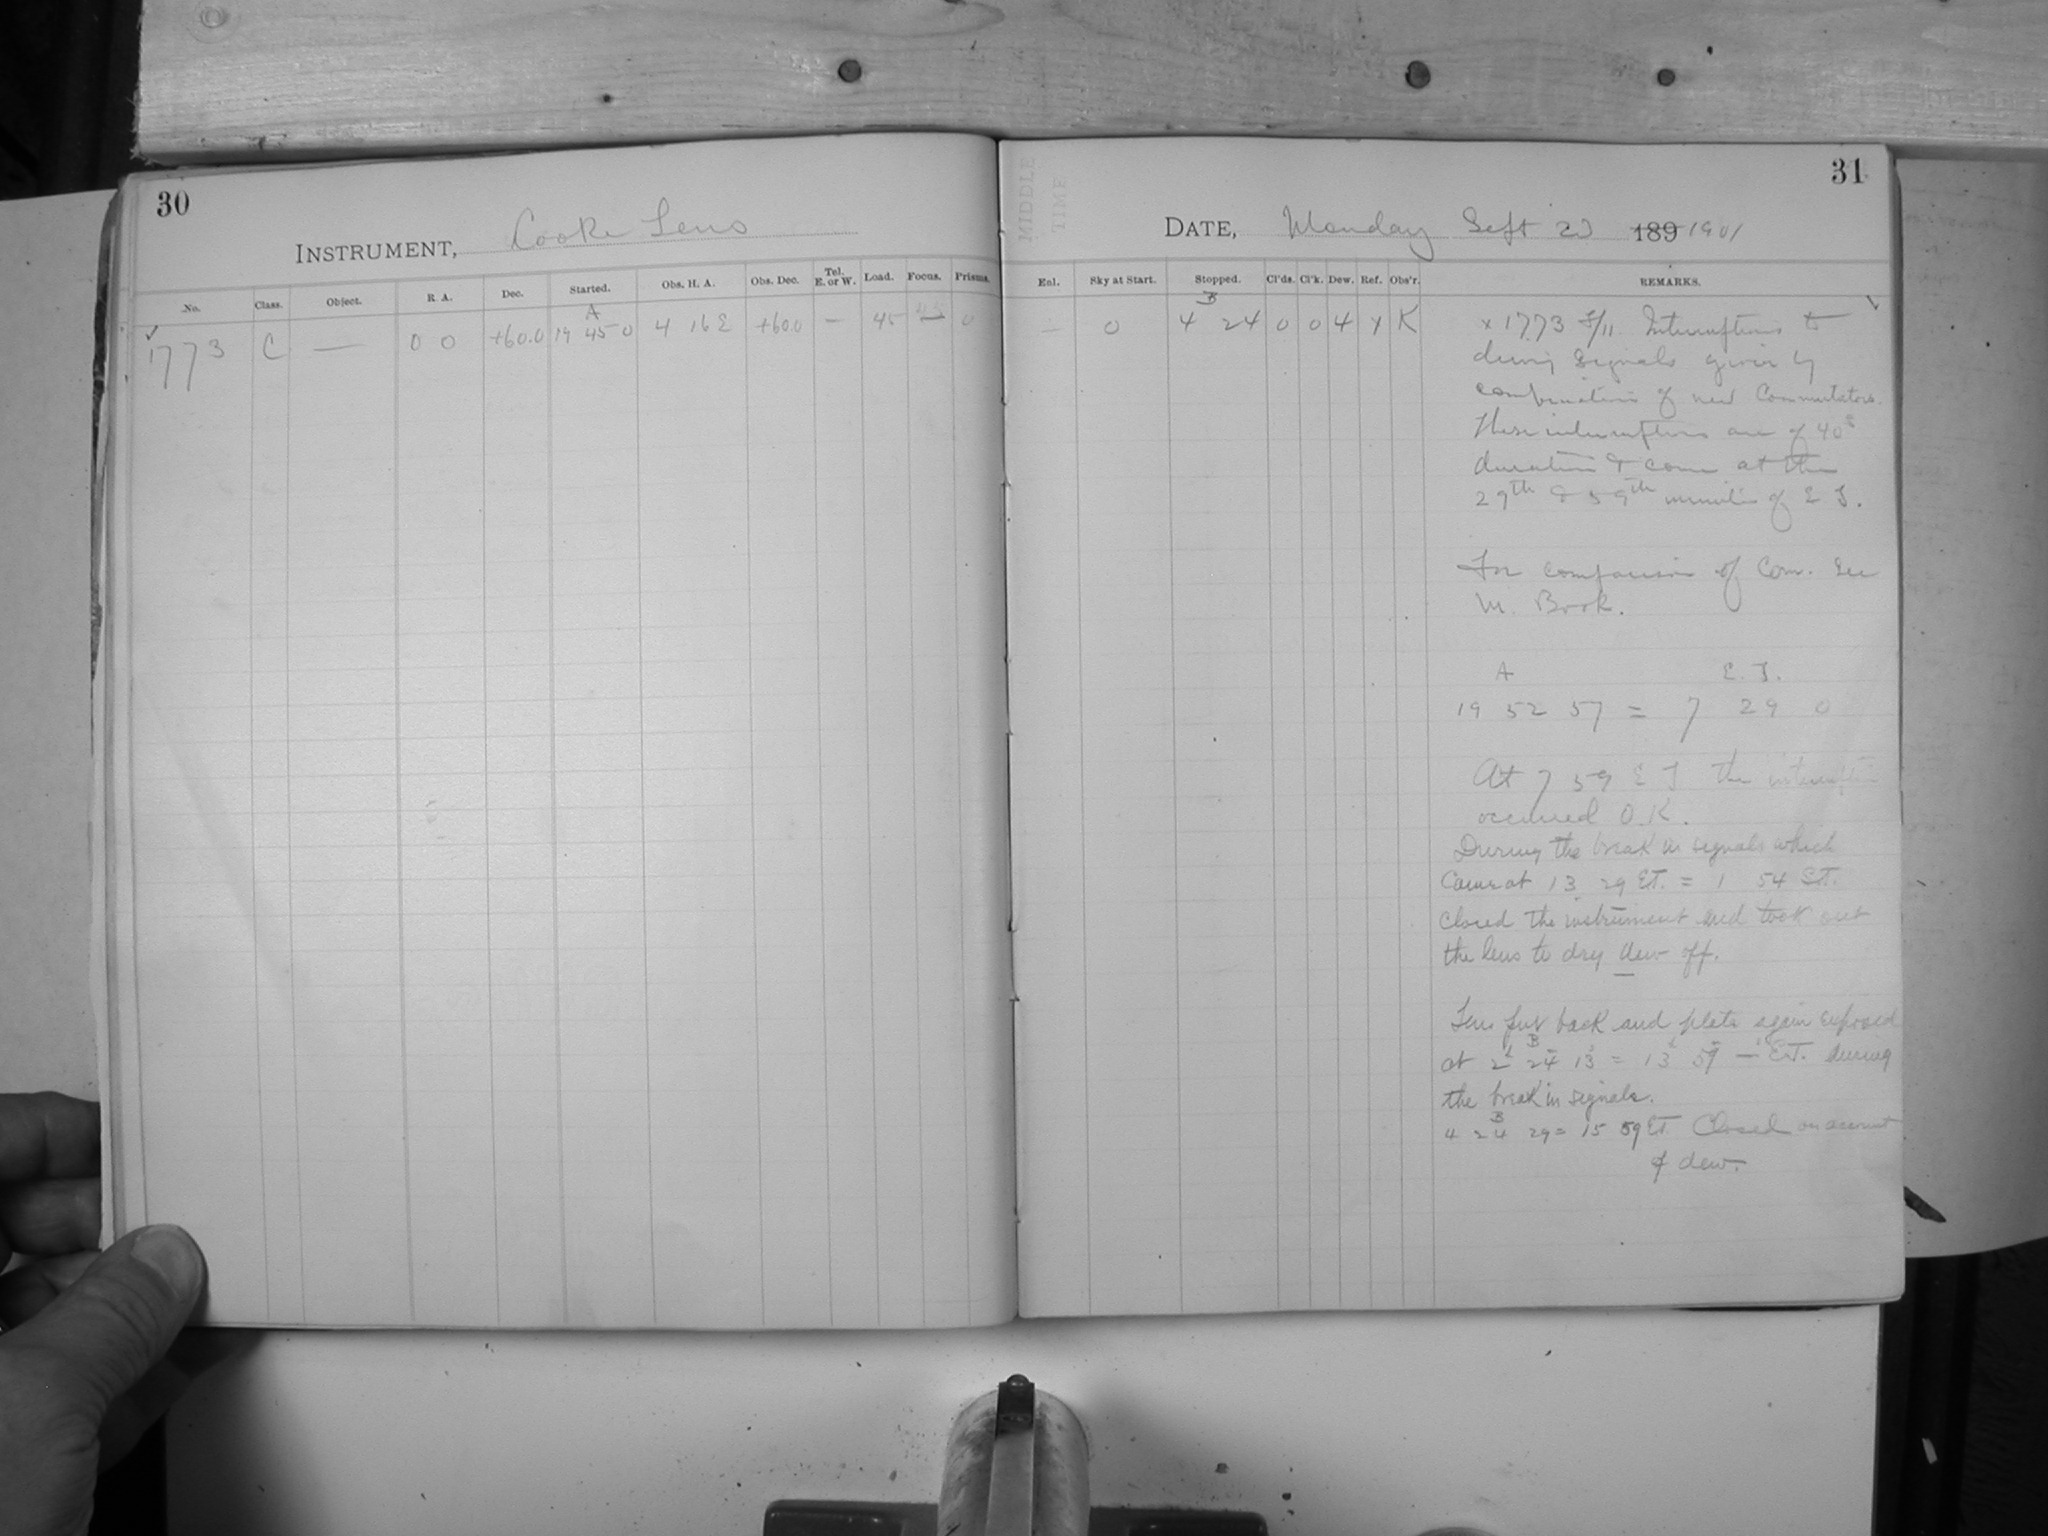 30
INSTRUMENT, Cooke Lens
No. Class. Object. R. A. Dec. Started. Obs. H. A. Obs. Dec. Tel. E. or W. Load. Focus. Prisms.
A
✓
1773 C — 0 0 +60.0 19 45 0 4 16 E +60.0 — 45 0
MIDDLE
TIME
31
DATE, Monday Sept 23 189 1901
Enl. Sky at Start. Stopped. Cl'ds. Cl'k. Dew. Ref. Obs'r. REMARKS.
B
— 0 4 24 0 0 4 Y K
× 1773 F/11. Interruptions to
during signals given by
combination of new Commutators.
These interruptions are of 40s
duration & come at the
29th & 59th minutes of E T.
For comparison of Com. see
M. Book.
A E. T.
19 52 57 = 7 29 0
At 7 59 E T the interruption
occurred O.K.
During the break in signals which
Came at 13 29 ET. = 1 54 ST.
closed the instrument and took out
the lens to dry dew off.
Lens put back and plate again exposed
B
at 2 24 13 = 13 59 — E.T. during
the break in signals.
B
4 24 29 = 15 59 ET. Closed on account
of dew.